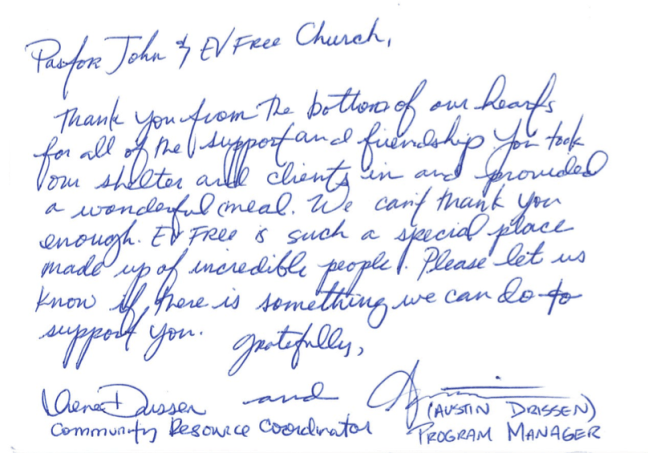 Pastor John & EV Free Church,
Thank you from the bottom of our hearts
for all of the support and friendship you took
our shelter and clients in and provided
a wonderful meal. We can't thank you
enough. EV Free is such a special place
made up of incredible people. Please let us
know if there is something we can do to
support you.
Gratefully,
Drissen and
(AUSTIN DRISSEN)
Community Resource Coordinator
PROGRAM MANAGER